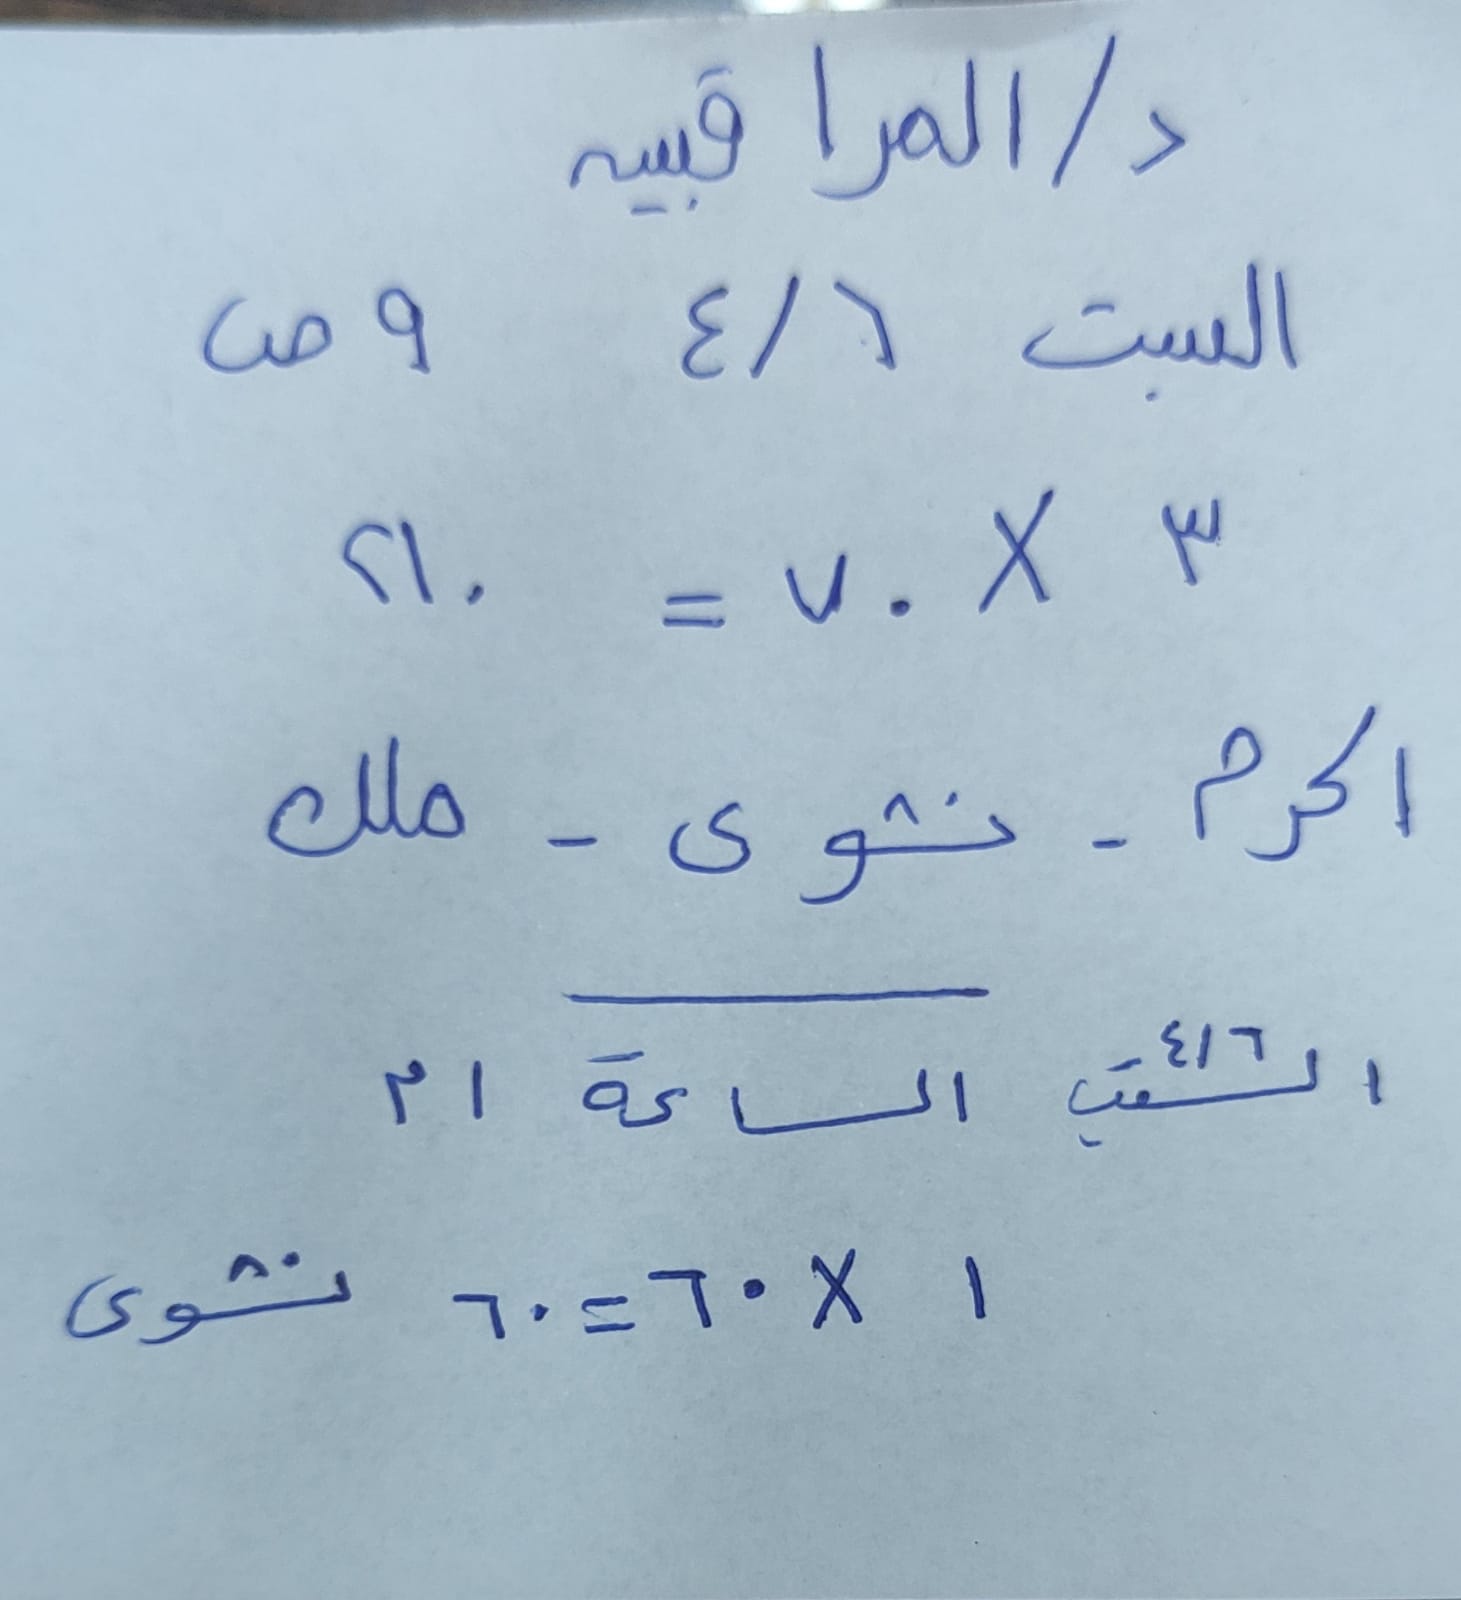 د/المراقبيه
السبت ٤/٦ ٩ ص
٣ X ٧٠ = ٢١٠
اكرم - نشوى - ملك
السبت ٤/٦ الساعة ١ م
١ X ٦٠ = ٦٠ نشوى